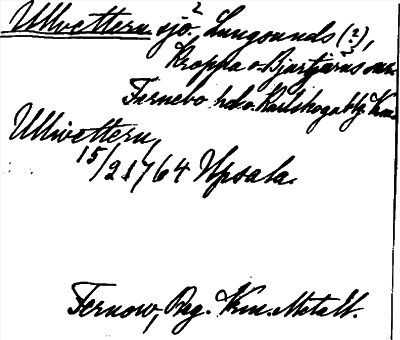 Ullvettern sjö. Lungsunds (?),
Kroppa o. Bjurtjärns snr
Färnebo hd o. Karlskoga blg. Krn.
Ullvettern,
15/2 1764 Upsala.
Fernow, Reg. Krn. Metall.